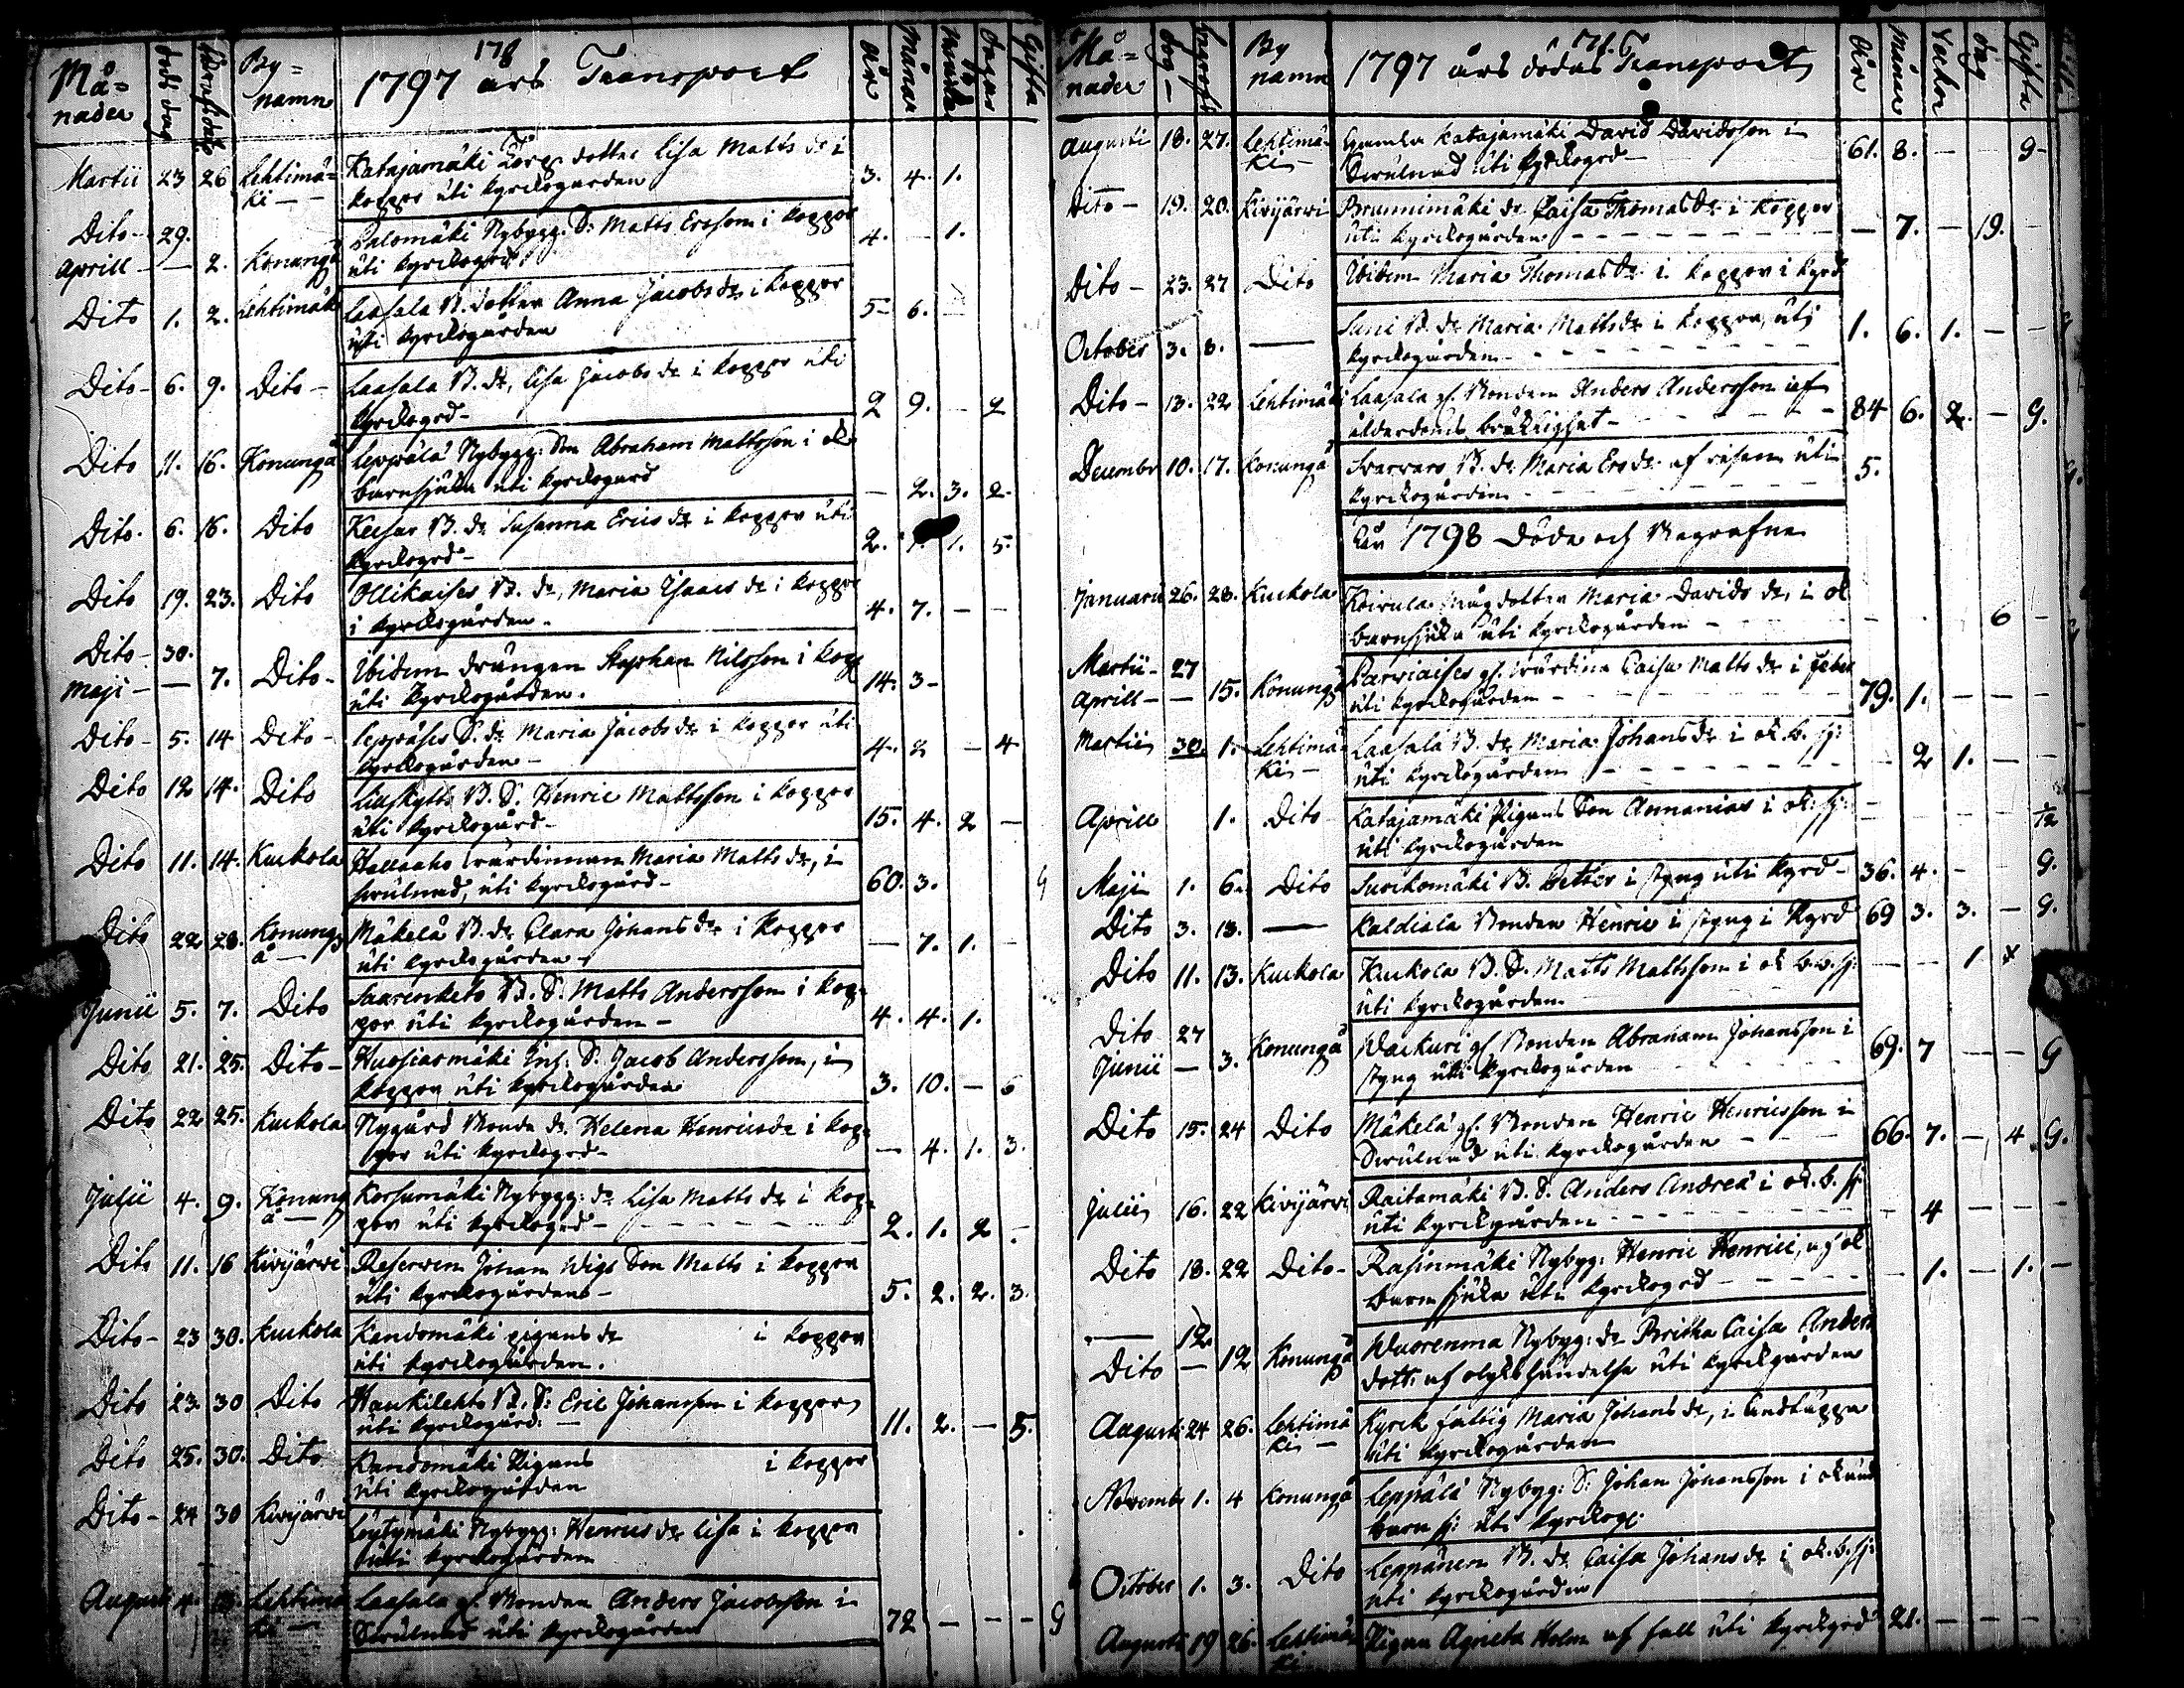 178
Må=
nader
döds dag
By=
namn
1797 års Transport
År
Gifta
Martii 23 26 Lehtimä= Katajamäki Torp. dotter Lisa Matts dr i
ki — koppor uti kyrkogården 3. 4. 1.
Dito 29.
Aprill — 2. Konungå Salomäki Nybygg. S: Matts Ersson i koppor
uti kyrkogård 4. — 1.
Dito 1. 2. Lehtimäki Laasala B. dotter Anna Jacobs dr i koppor
uti kyrkogården 5 6.
Dito 6. 9. Dito Laasala B. dr, Lisa Jacobs dr i koppor uti
kyrkogrd 2 9. — 2
Dito 11. 16. Konungå Leppälä Nybygg: Son Abraham Mattsson i ok
barnsjuka uti kyrkogård — 2. 3. 2.
Dito 6. 16. Dito Keisar B. dr Susanna Erics dr i koppor uti
kyrkogrd 2. 1. 5.
Dito 19. 23. Dito Ollikaises B. dr, Maria Isaacs dr i koppor
i kyrkogården. 4. 7. — —
Dito 30.
Maji — 7. Dito Ibidem drängen Stephan Nilsson i kopp
uti kyrkogården. 14. 3
Dito 5. 14 Dito Leppäses S. dr Maria Jacobs dr i koppor uti
kyrkogården 4. 2 — 4
Dito 12 14. Dito B. S. Henric Mattsson i koppor
uti kyrkogård 15. 4. 2 —
Dito 11. 14. Kuckola Hallaaho wärdinnan Maria Matts dr, i
swulnad, uti kyrkogård 60. 3. G
Dito 22 28. Konung= Mäkelä B. dr Clara Johans dr i koppor
å — uti kyrkogården — 7. 1. —
Junii 5. 7. Dito Saarenketo B. S. Matts Andersson i kop=
por uti kyrkogården 4. 4. 1.
Dito 21. 25. Dito Huosiasmäki Inh: S: Jacob Andersson, i
koppor uti kyrkogården 3. 10. — 6
Dito 22 25. Kuckola Nygård Bonde dr. Helena Henricsdr i kop=
por uti kyrkogrd — 4. 1. 3.
Julii 4. 9. Konung Korsumäki Nybygg: dr Lisa Matts dr i kop=
å — por uti kyrkogrd 2. 1. 2 .
Dito 11. 16 Kivijärvi Reserven Johan Wigs Son Matts i koppor
uti kyrkogården 5. 2. 2. 3.
Dito 23 30. Kuckola Kandomäki pigans dr i koppor
uti kyrkogården.
Dito 23 30 Dito Haukilehto B. S: Eric Johansson i koppor
uti kyrkogård: 11. 2. — 5.
Dito 25. 30. Dito Kandomäki Pigans i koppor
uti kyrkogården
Dito 24 30 Kivijärvi Löytymäki Nybygg: Henrics dr Lisa i koppor
uti kyrkogården
Augusti 4. 13. Lehtimä Laasala gl. Bonden Anders Jacobsson i
ki — Swulnad uti kyrkogården 72 — — — G
Må=
nader
Dag
By
namn
1797 års dödas Transport
År
Månar
Veckor
dag
Gifta
Augusti 18. 27. Lehtimä= Gamla Katajamäki David Davidsson i
ki — Swulnad uti kyrkogrd 61. 8. — — G
Dito 19. 20. Kivijärvi Brunnimäki dr Caisa Thomas dr i koppor
uti kyrkogården — 7. — 19. —
Dito 23. 27 Dito Ibidem Maria Thomas dr i koppor i kyrd
October 3. 8. — Suni B. dr Maria Matts dr i koppor, uti
kyrkogården 1. 6. 1. — —
Dito 13. 22 Lehtimäki Laasala gl. Bonden Anders Andersson af
ålderdoms bräcklighet 84 6. 2. — G.
December 10. 17. Konungå Svarvars B. dr Maria Ers dr af risen uti
kyrkogården 5.
År 1798 Döda och Begrafne
Januarii 26. 28. Kuckola Koirula Mågdotter Maria Davids dr, i ok
barnsjuka uti kyrkogården 6 —
Martii 27
Aprill — 15. Konungå Parwiaises gl. wärdina Caisa Matts dr i feber
uti kyrkogården 79. 1. — — —
Martii 30. 1. Lehtimä Laasala B. dr Maria Johans dr i ok. b. sj:
ki — uti kyrkogården — 2 1. — —
Aprill 1. Dito Katajamäki Pigans Son Annanias i ok: sj:
uti kyrkogården 1/2
Maji 1. 6. Dito Suokomäki B. Petter i styng uti kyrd 36. 4. — G.
Dito 3. 13. — Kaldiala Bonden Henric i styng i Kyrd 69 3. 3. — G.
Dito 11. 13. Kuckola Kuckola B. S. Matts Mattsson i ok b. sj:
uti kyrkogården — — 1
Dito 27
Junii — 3. Konungå Wackuri gl. Bonden Abraham Johansson i
styng uti kyrkogården 69. 7 — — G
Dito 15. 24 Dito Mäkelä gl. Bonden Henric Henricsson i
Swulnad uti kyrkogården 66. 7. — 4. G.
Julii 16. 22 Kivijärvi Raitamäki B. S. Anders Andreä i ok. b. sj:
uti kyrkogården — 4 — — —
Dito 18. 22 Dito Rasinmäki Nybyg: Henric Henrici, af ok
barnsjuka uti kyrkogrd — 1. — 1. —
— 12
Dito — 12 Konungå Wuorenma Nybyg: dr Britha Caisa Anders
dott: af olyks händelse uti kyrkogården
Augusti 24 26. Lehtimä Kyrk fattig Maria Johans dr, i Andtäppa
ki — uti kyrkogården
Novemb 1. 4 Konungå Leppälä Nybyg: S: Johan Johansson i okänd
barn sj: uti kyrkog:
October 1. 3. Dito Leppänen B. dr Caisa Johans dr i ok. b. sj:
uti kyrkogården
Augusti 19 26. Lehtimä Pigan Agneta Holm af fall uti kyrkogrd 21. — — —
ki